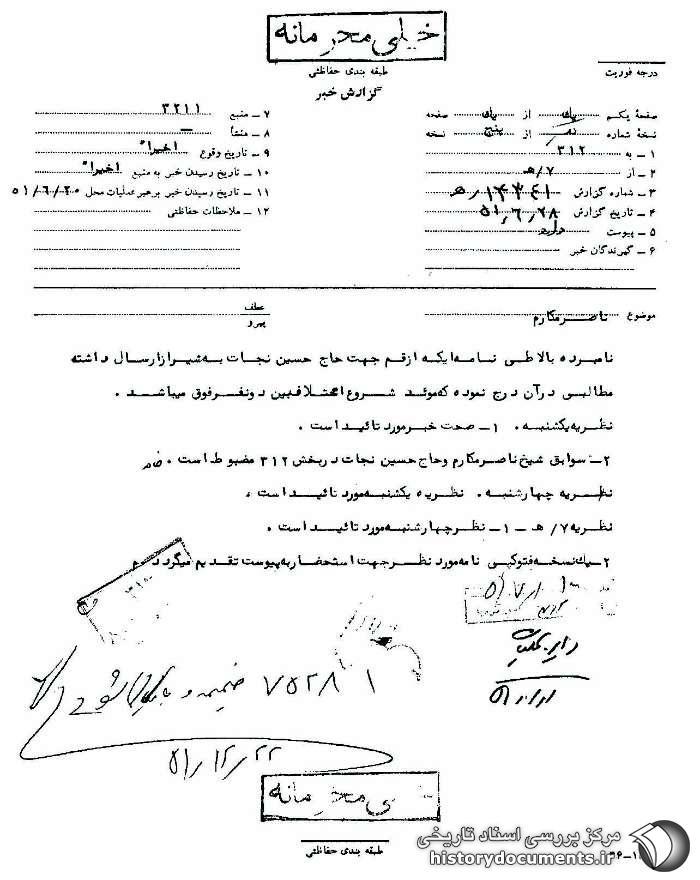 خیلی محرمانه
طبقه بندی حفاظتی
درجه فوریت
گزارش خبر
صفحهٔ یکم یک از یک صفحه
نسخهٔ شماره از پنج نسخه
۱ – به ۳۱۲
۲ – از ۷/هـ
۳ – شماره گزارش ۱۴۳۴۱/هـ
۴ – تاریخ گزارش ۵۱/۶/۲۸
۵ – پیوست دارد
۶ – گیرندگان خبر
۷ – منبع ۳۲۱۱
۸ – منشأ –
۹ – تاریخ وقوع اخیراً
۱۰ – تاریخ رسیدن خبر به منبع اخیراً
۱۱ – تاریخ رسیدن خبر برهبر عملیات محل ۵۱/۶/۲۰
۱۲ – ملاحظات حفاظتی
موضوع ناصر مکارم
عطف
پیرو
نامبرده بالا طی نامه ایکه از قم جهت حاج حسین نجات به شیراز ارسال داشته
مطالبی در آن درج نموده که موئد شروع اختلاف بین دونفر فوق میباشد .
نظریه یکشنبه . ۱ – صحت خبر مورد تائید است .
۲ – سوابق شیخ ناصر مکارم و حاج حسین نجات در بخش ۳۱۲ مضبوط است .
نظریه چهارشنبه . نظریه یکشنبه مورد تائید است .
نظریه ۷/ هـ – ۱ – نظر چهارشنبه مورد تائید است .
۲ – یک نسخه فتوکپی نامه مورد نظر جهت استحضار به پیوست تقدیم میگردد
۵۱/۷/۱
۷۵۲۸۱ ضمیمه و شود
۵۱/۱۲/۲۲
محرمانه
طبقه بندی حفاظتی
مرکز بررسی اسناد تاریخی
historydocuments.ir